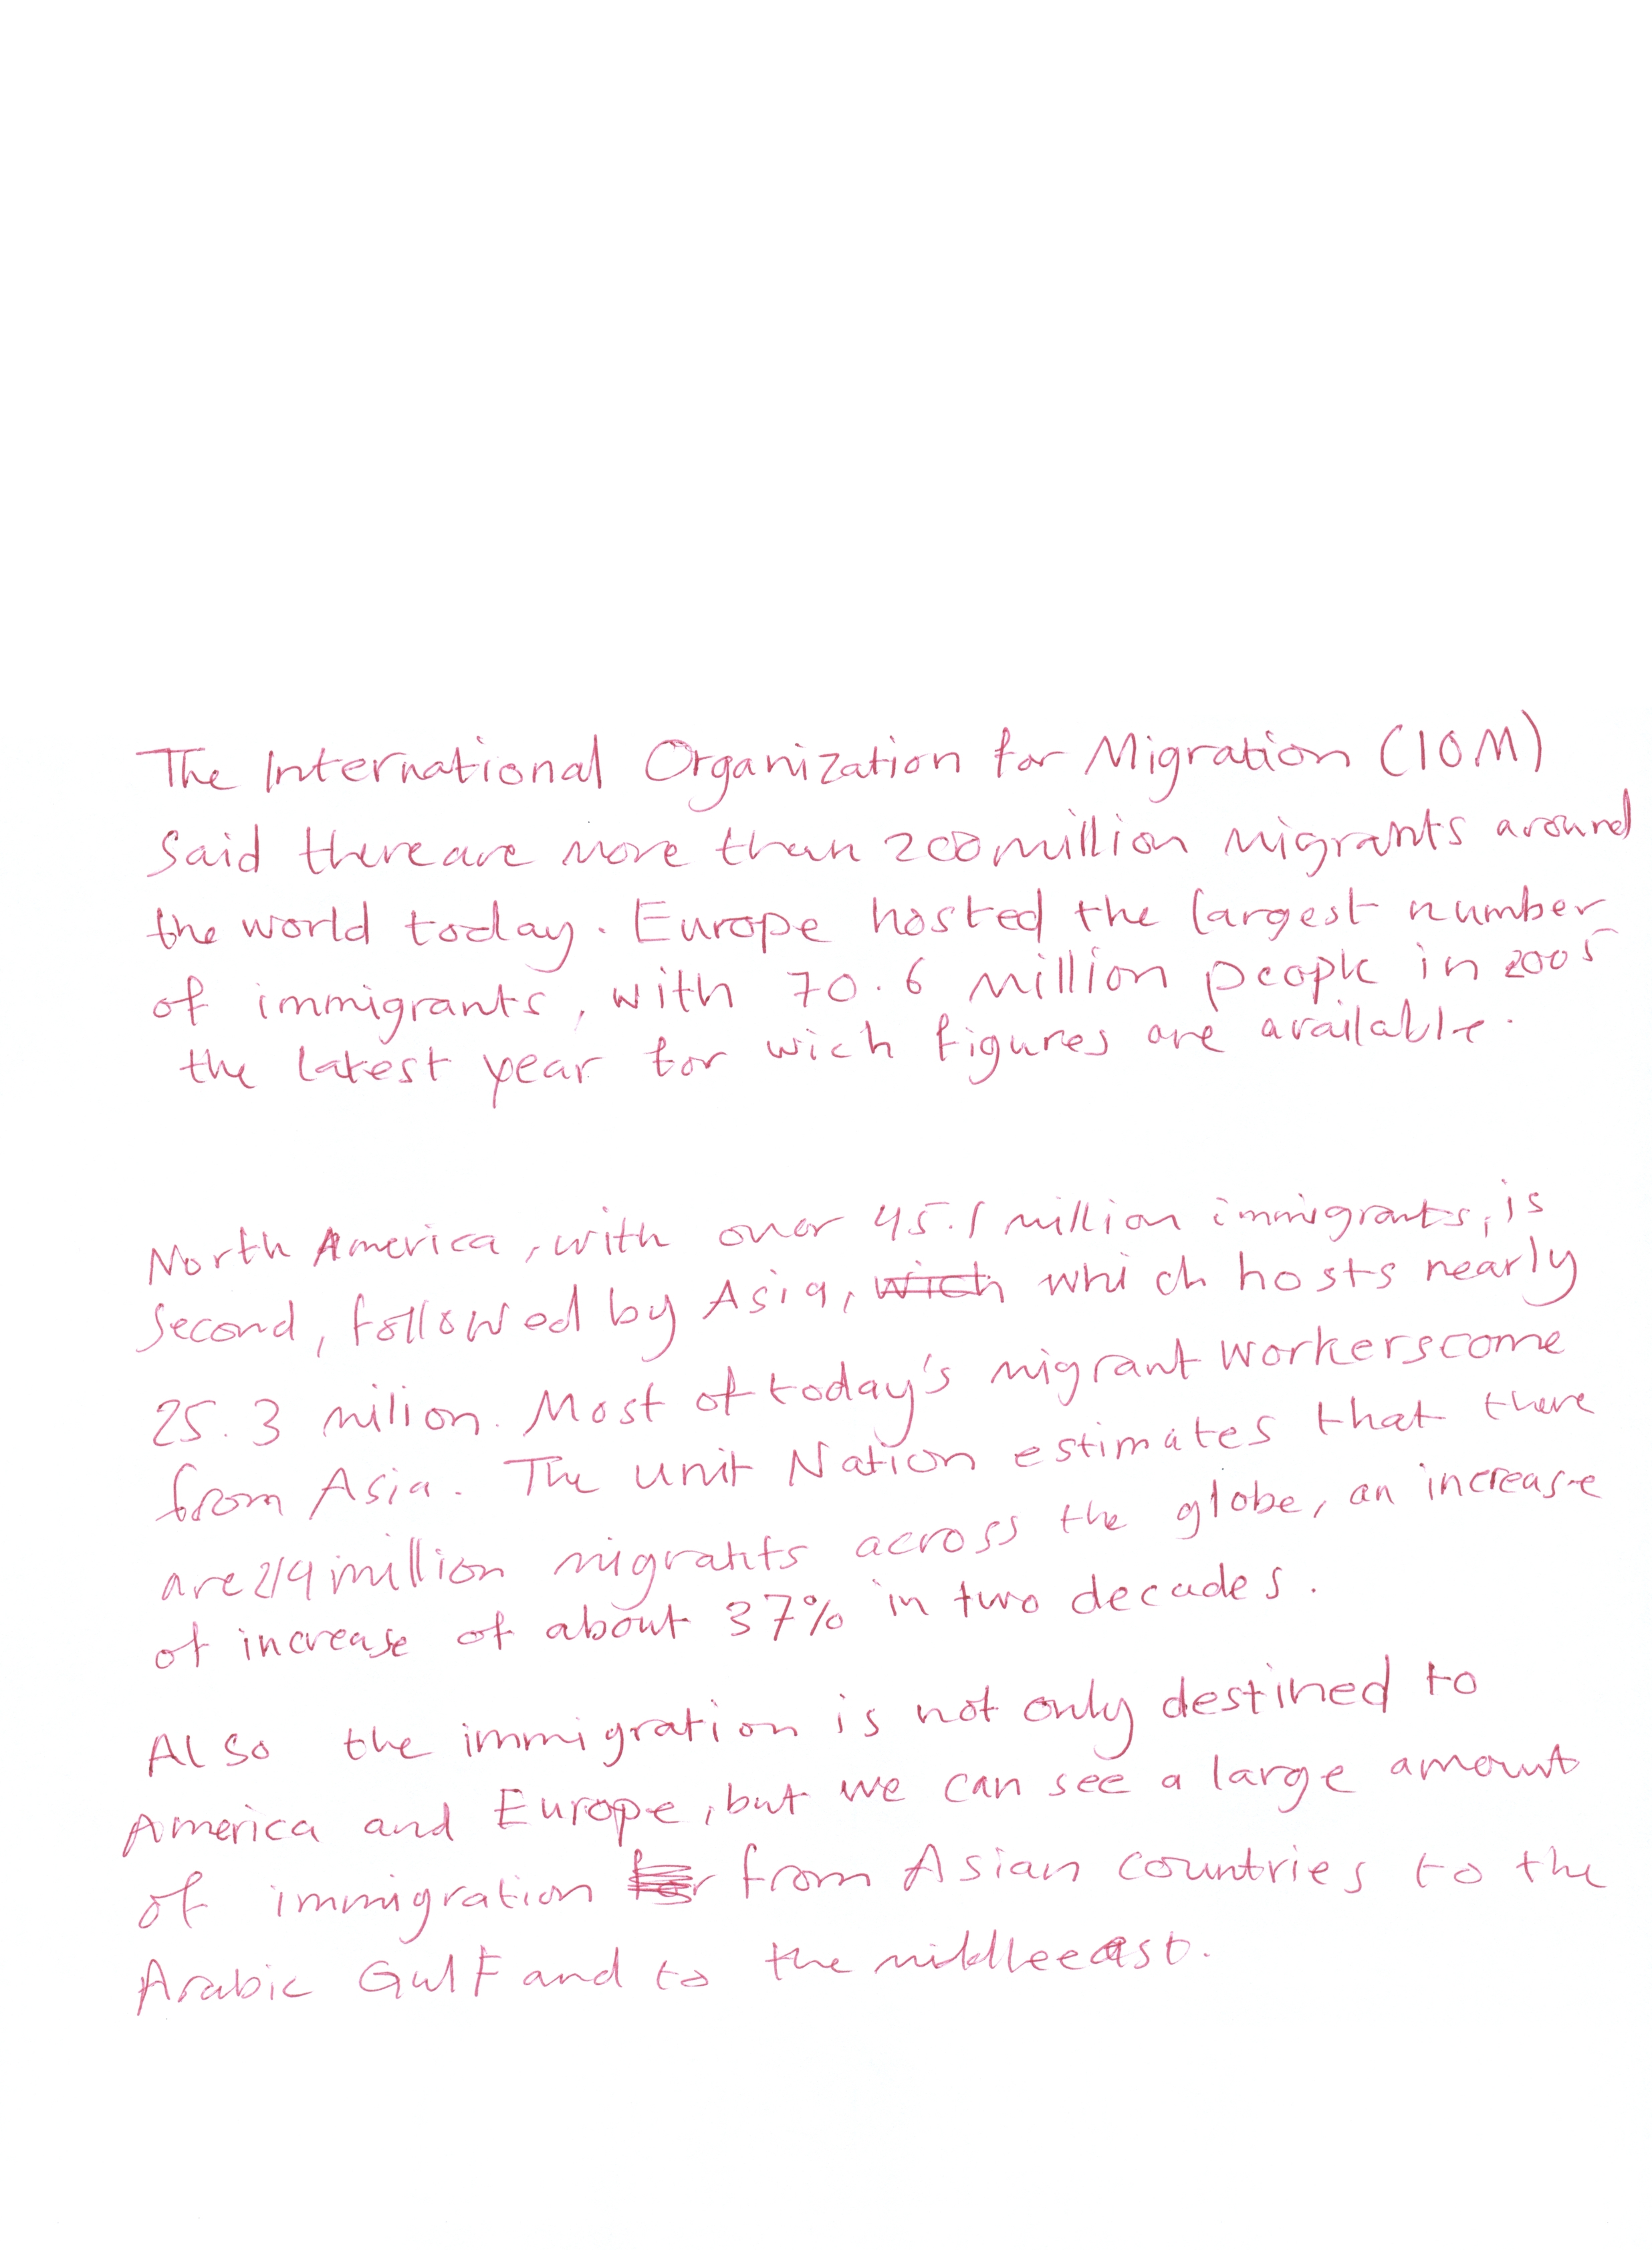 The International Organization for Migration (IOM)
Said there are more than 200 million migrants around
the world today. Europe hosted the largest number
of immigrants, with 70.6 million people in 2005
the latest year for wich figures are available.
North America, with over 45.1 million immigrants, is
Second, followed by Asia, wich which hosts nearly
25.3 milion. Most of today's migrant workers come
from Asia. The unit Nation estimates that there
are 214 million migrants across the globe, an increase
of increase of about 37% in two decades.
Also the immigration is not only destined to
America and Europe, but we can see a large amount
of immigration from Asian countries to the
Arabic Gulf and to the middle east.